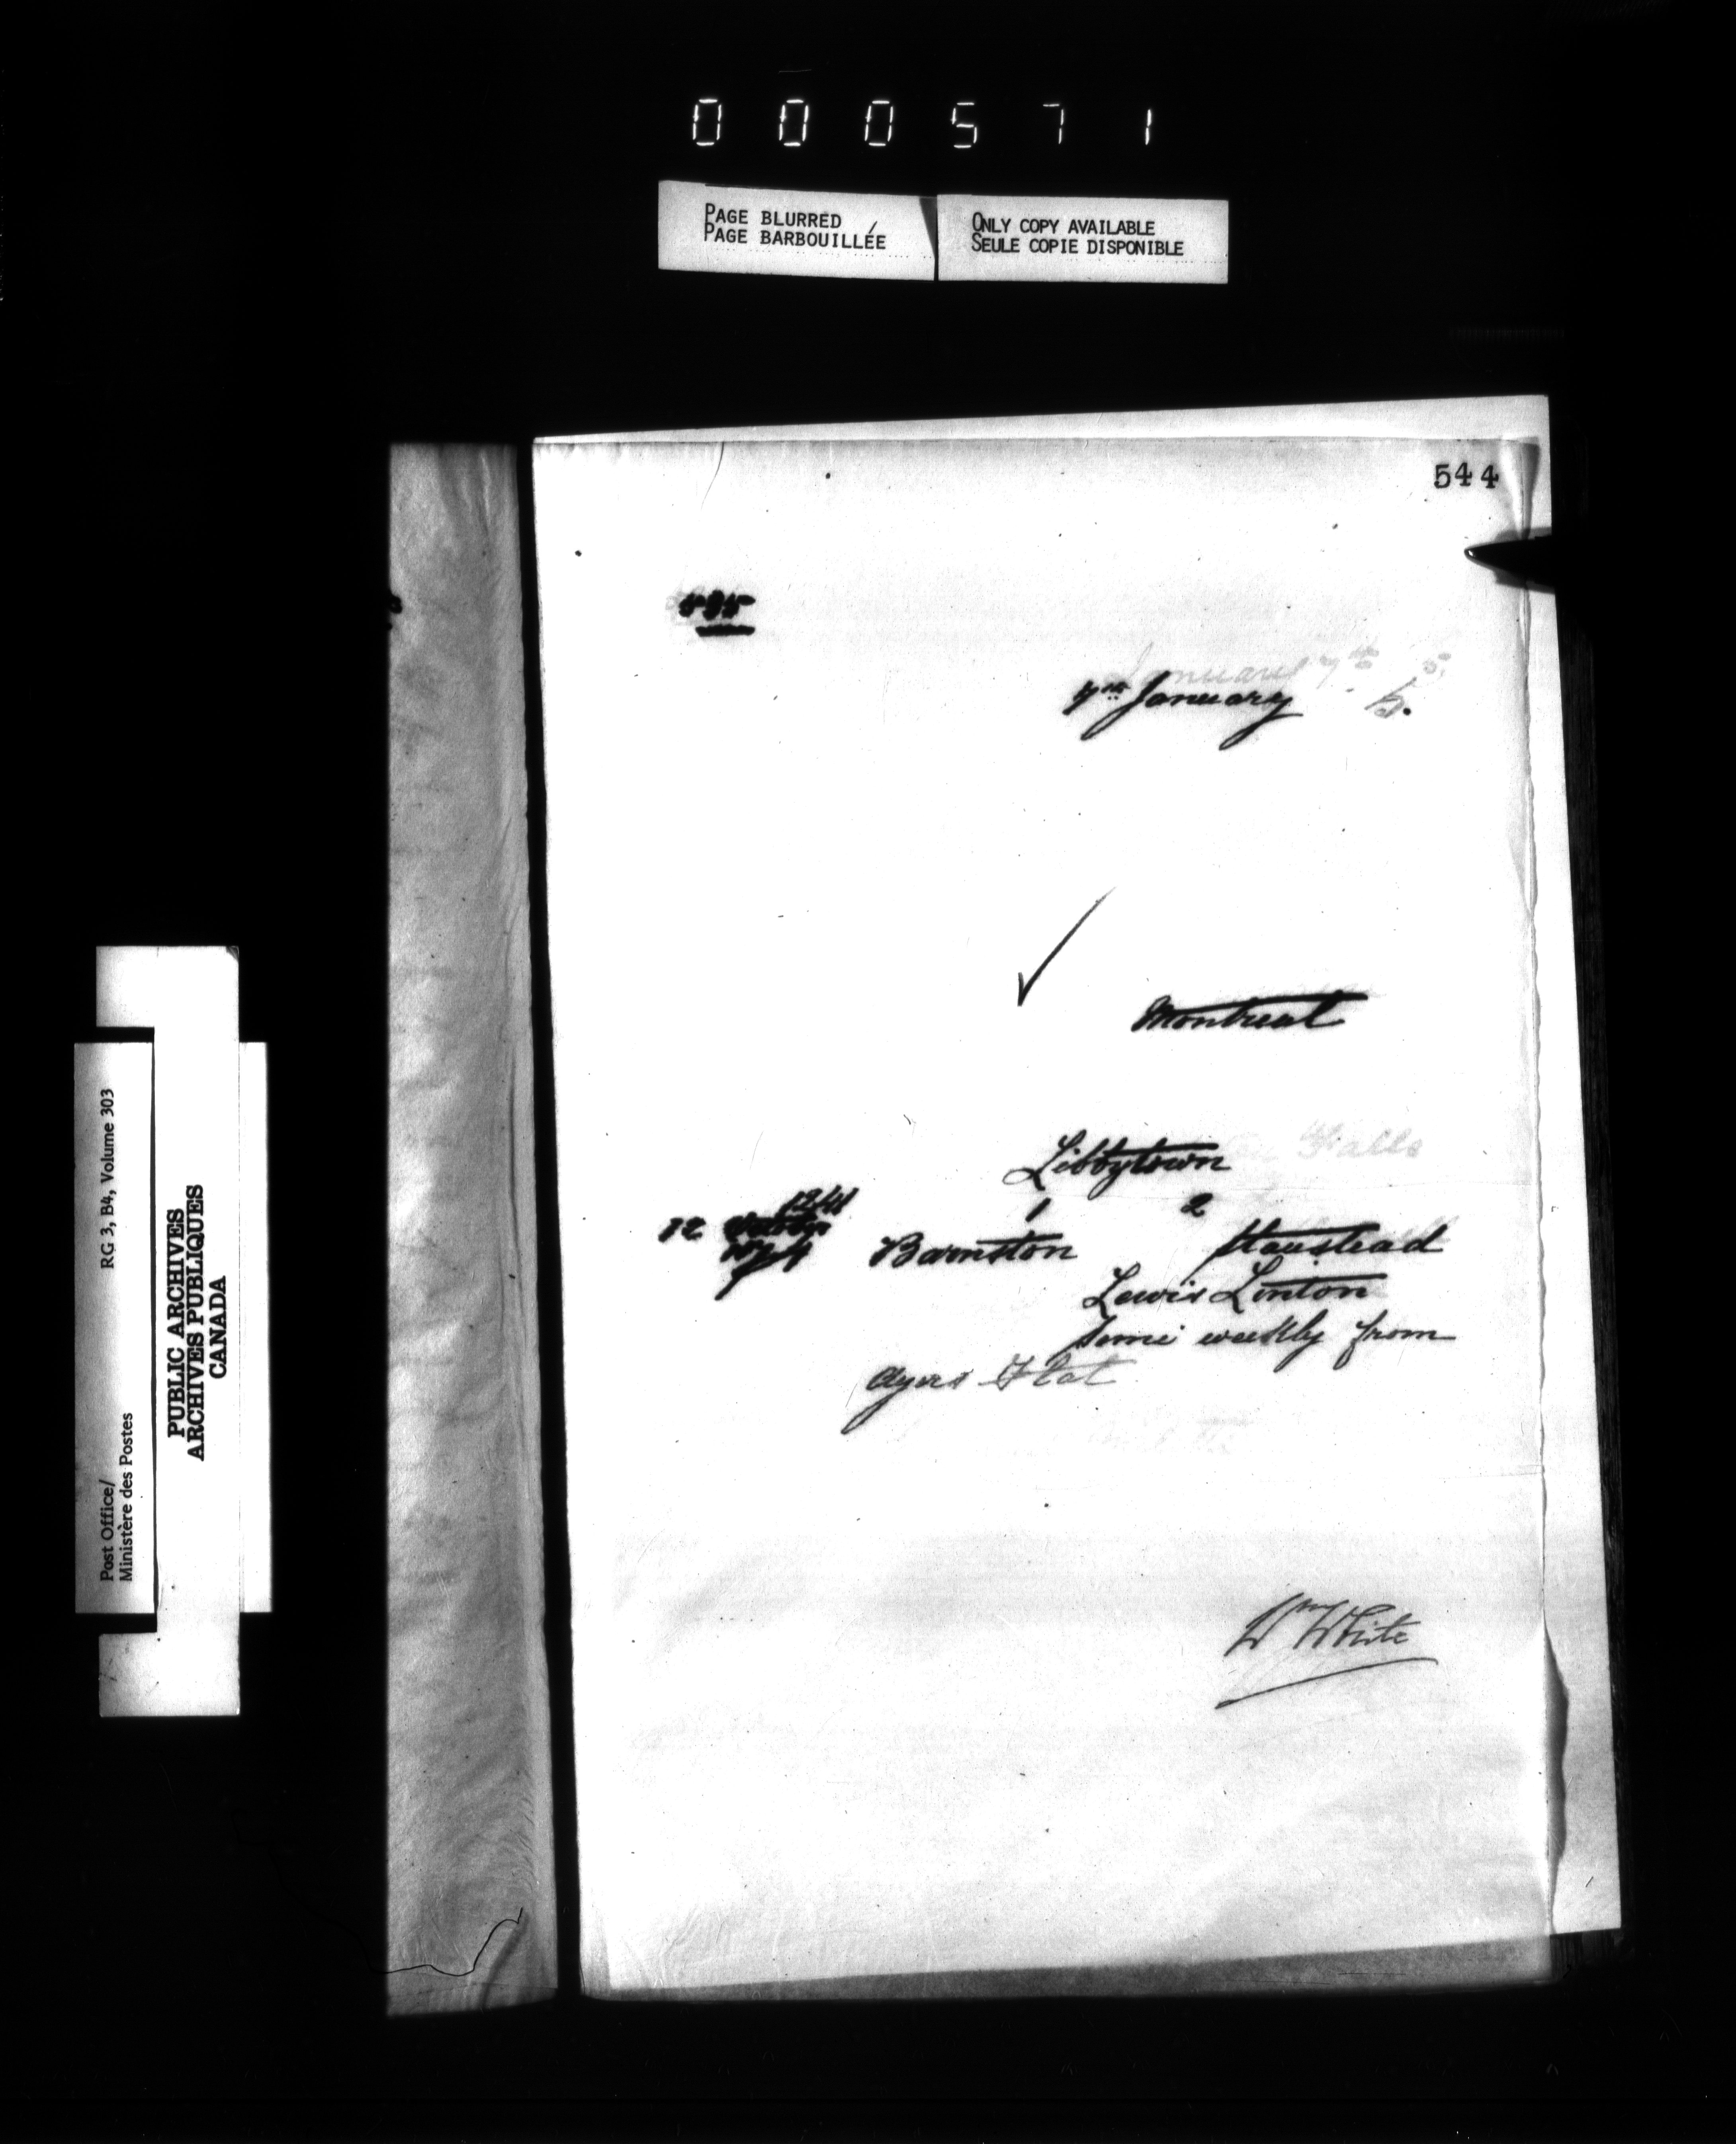 000571
PAGE BLURRED
PAGE BARBOUILLÉE
ONLY COPY AVAILABLE
SEULE COPIE DISPONIBLE
544
7th January 5.
Montreal
Libbytown
1 2
12
Barnston Stanstead
Lewis Linton
Semi weekly from
Ayers Flat
Wm White
Post Office/ RG 3, B4, Volume 303
Ministère des Postes
PUBLIC ARCHIVES
ARCHIVES PUBLIQUES
CANADA